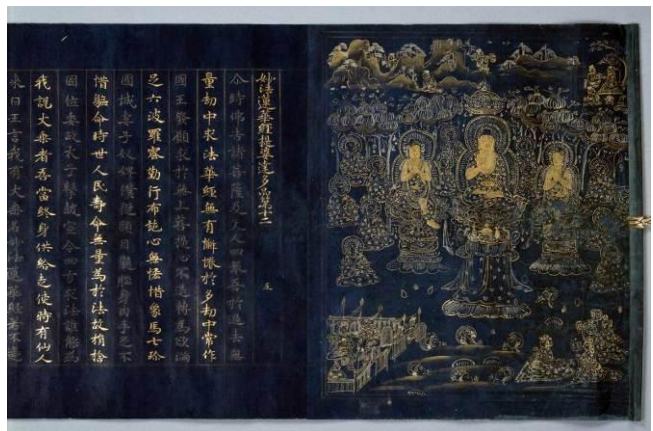 妙法蓮華經提婆達多品第十二
尒時佛告諸菩薩及天人四衆吾於過去無
量劫中求法華經無有懈惓於多劫中常作
國王發願求於無上菩提心不退轉爲欲滿
足六波羅蜜勤行布施心無悋惜象馬七珍
國城妻子奴婢僕從頭目髓腦身肉手足不
惜軀命時世人民壽命無量爲於法故捐捨
國位委政太子擊鼓宣令四方求法誰能爲
我說大乘者吾當終身供給走使時有仙人
來白王言我有大乘名妙法蓮華經若不違